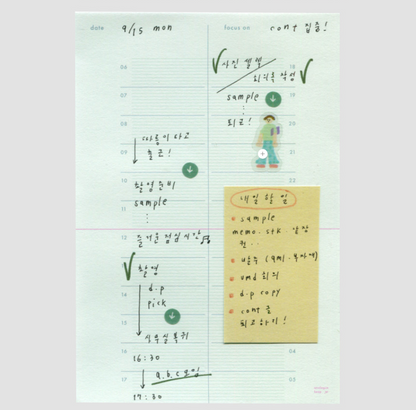 date 9/15 mon
focus on cont 집중!
06
07
08
따릉이 타고
09 출근!
10 촬영준비
sample
11
12 즐거운 점심시간
13 촬영
14 d.p
pick
15
사무실 복귀
16 16:30
17 a.b.c 모임
17:30
사진 셀렉
18
회의록 작성
sample
19
퇴근!
20
21
22
내일 할 일
sample
memo.stk
vmd 회의
d.p copy
cont 글
퇴고하기!
04
05